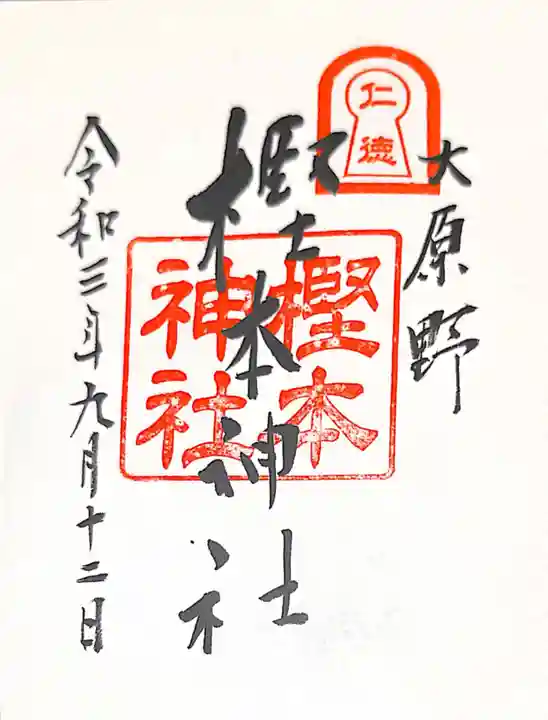 大原野
仁
徳
樫本神社
樫本
神社
令和三年九月十二日